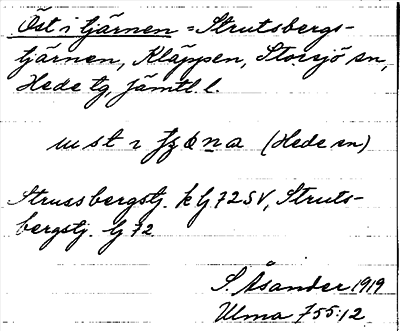 Öst i tjärnen = Strutsbergs-
tjärnen, Kläppen, Storsjö sn,
Hede tg, Jämtl. l.
(Hede sn)
Strussbergstj. k Lj 72 SV, Struts-
bergstj. Lj 72
S. Åsander 1919
Ulma 755:12